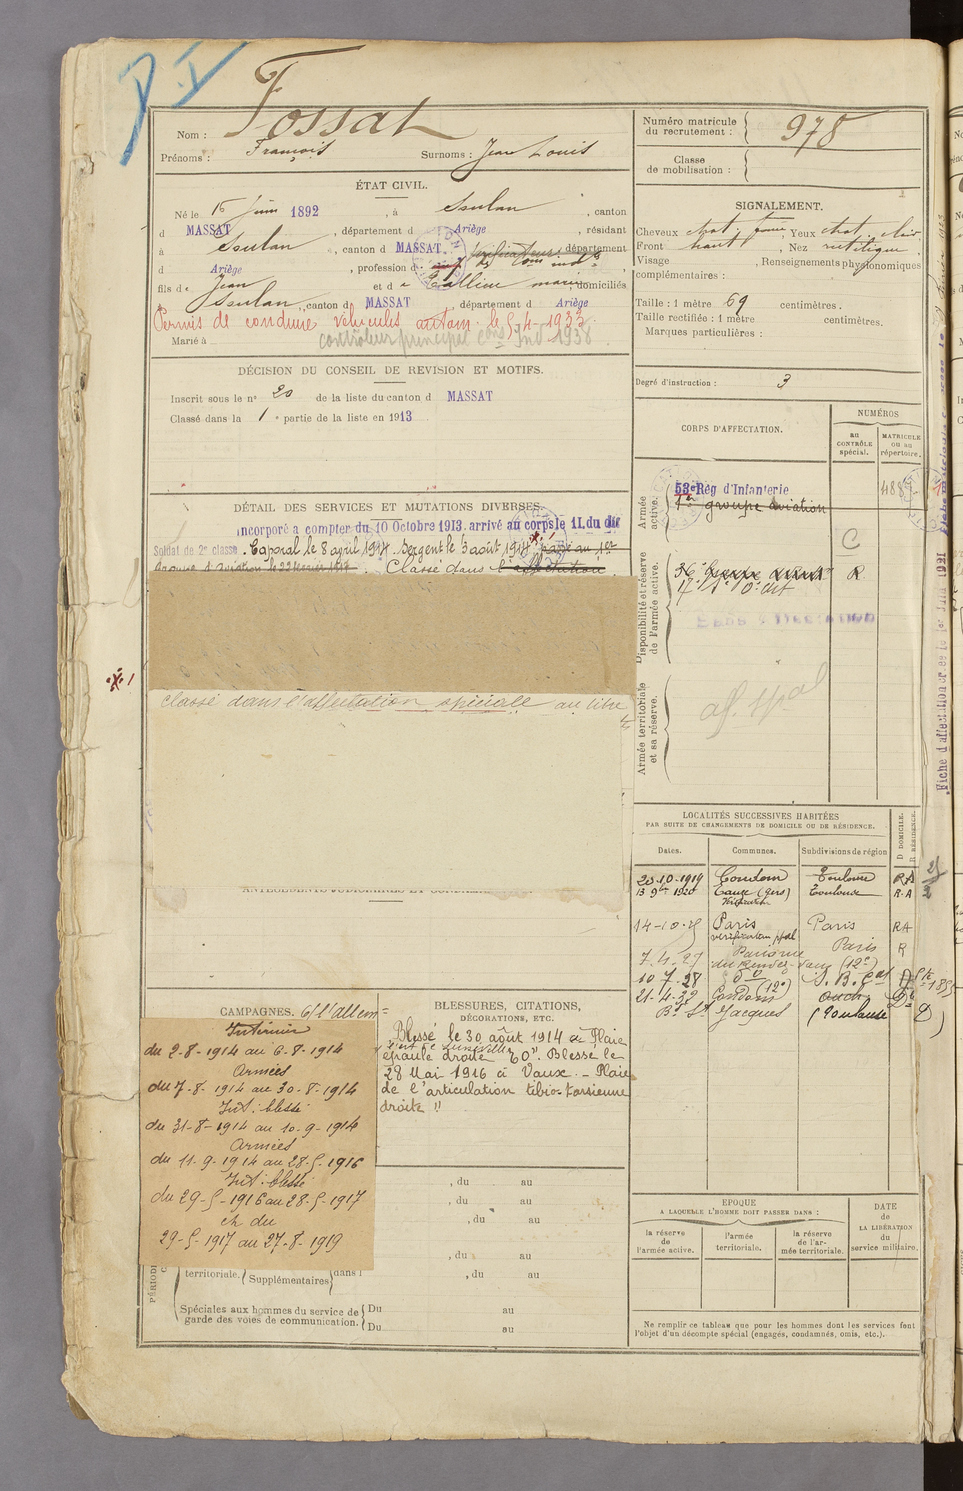 P I
Nom : Fossat
Prénoms : François Surnoms : Jean Louis
ÉTAT CIVIL.
Né le 16 juin 1892, à Soulan, canton
d MASSAT, département d Ariège, résidant
à Soulan, canton d MASSAT, département
d Ariège, profession de
fils de Jean et de marie domiciliés
à Soulan, canton d MASSAT, département d Ariège
Permis de conduire véhicules autom. le 5-4-1933
Marié à contrôleur principal 1938
DÉCISION DU CONSEIL DE REVISION ET MOTIFS.
Inscrit sous le nº 20 de la liste du canton d MASSAT
Classé dans la 1e partie de la liste en 1913
DÉTAIL DES SERVICES ET MUTATIONS DIVERSES.
incorporé a compter du 10 Octobre 1913. arrivé au corps le 11. du dit
Soldat de 2e classe. Caporal le 8 avril 1914. Sergent le 5 août 1914. passé au 1er
Groupe d'aviation le 22 février 1919. Classé dans l'affectation
classé dans l'affectation spéciale au titre
ANTÉCÉDENTS JUDICIAIRES ET
CAMPAGNES. C/ l'allem=
Intérieur
du 2-8-1914 au 6-8-1914
Armées
du 7-8-1914 au 30-8-1914
Int. blessé
du 31-8-1914 au 10-9-1914
Armées
du 11-9-1914 au 28-5-1916
Int. blessé
du 29-5-1916 au 28-5-1917
et du
29-5-1917 au 27-8-1919
BLESSURES, CITATIONS,
DÉCORATIONS, ETC.
Blessé le 30 août 1914 Plaie
épaule droite EO". Blessé le
28 Mai 1916 à Vaux. - Plaie
de l'articulation tibio-tarsienne
droite "
, du au
, du au
, du au
, du au
territoriale. Supplémentaires dans l , du au
Spéciales aux hommes du service de Du au
garde des voies de communication. Du au
PÉRIODE
Numéro matricule
du recrutement : 978
Classe
de mobilisation :
SIGNALEMENT.
Cheveux chat. foncé, Yeux chat. clair
Front haut, Nez rectiligne
Visage , Renseignements physionomiques
complémentaires :
Taille : 1 mètre 69 centimètres.
Taille rectifiée : 1 mètre centimètres.
Marques particulières :
Degré d'instruction : 3
CORPS D'AFFECTATION.
NUMÉROS
au
CONTRÔLE
spécial.
MATRICULE
ou au
répertoire.
Armée
active.
53e Rég d'Infanterie
1er groupe aviation
Disponibilité et réserve
de l'armée active.
C
R
SANS AFFECTATION
Armée territoriale
et sa réserve.
af. spal
LOCALITÉS SUCCESSIVES HABITÉES
PAR SUITE DE CHANGEMENTS DE DOMICILE OU DE RÉSIDENCE.
Dates. Communes. Subdivisions de région D DOMICILE. R RÉSIDENCE.
25-10-1919 Condom Toulouse RA
13 9bre 1920 Eauze (Gers) Toulouse R.A
14-10-25 Paris Paris RA
vérificateur ppal
7.4.27 Paris R
10-7-28 do
21-4-32 Condom Auch
Jacques (Toulouse D)
EPOQUE
A LAQUELLE L'HOMME DOIT PASSER DANS :
la réserve
de
l'armée active.
l'armée
territoriale.
la réserve
de l'ar-
mée territoriale.
DATE
de
LA LIBÉRATION
du
service militaire.
Ne remplir ce tableau que pour les hommes dont les services font
l'objet d'un décompte spécial (engagés, condamnés, omis, etc.).